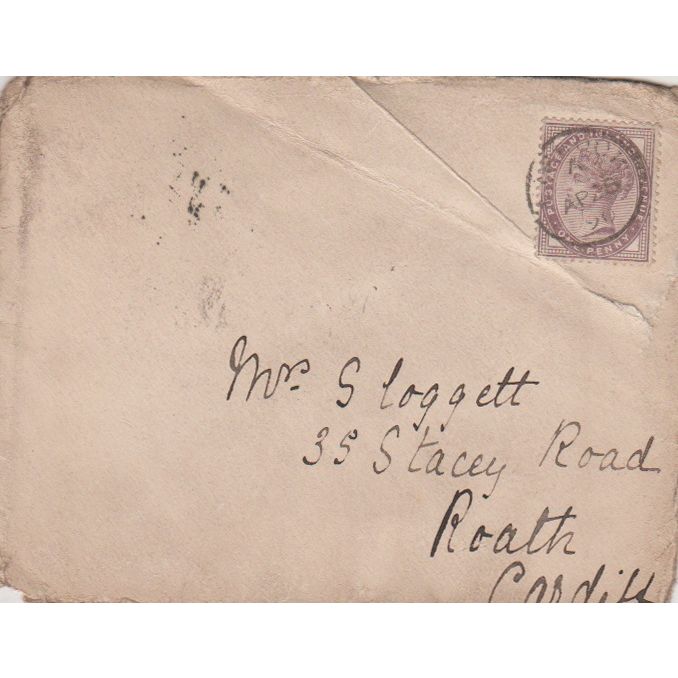 POSTAGE AND INLAND REVENUE
ONE PENNY
AP 25
Mrs Sloggett
35 Stacey Road
Roath
Cardiff